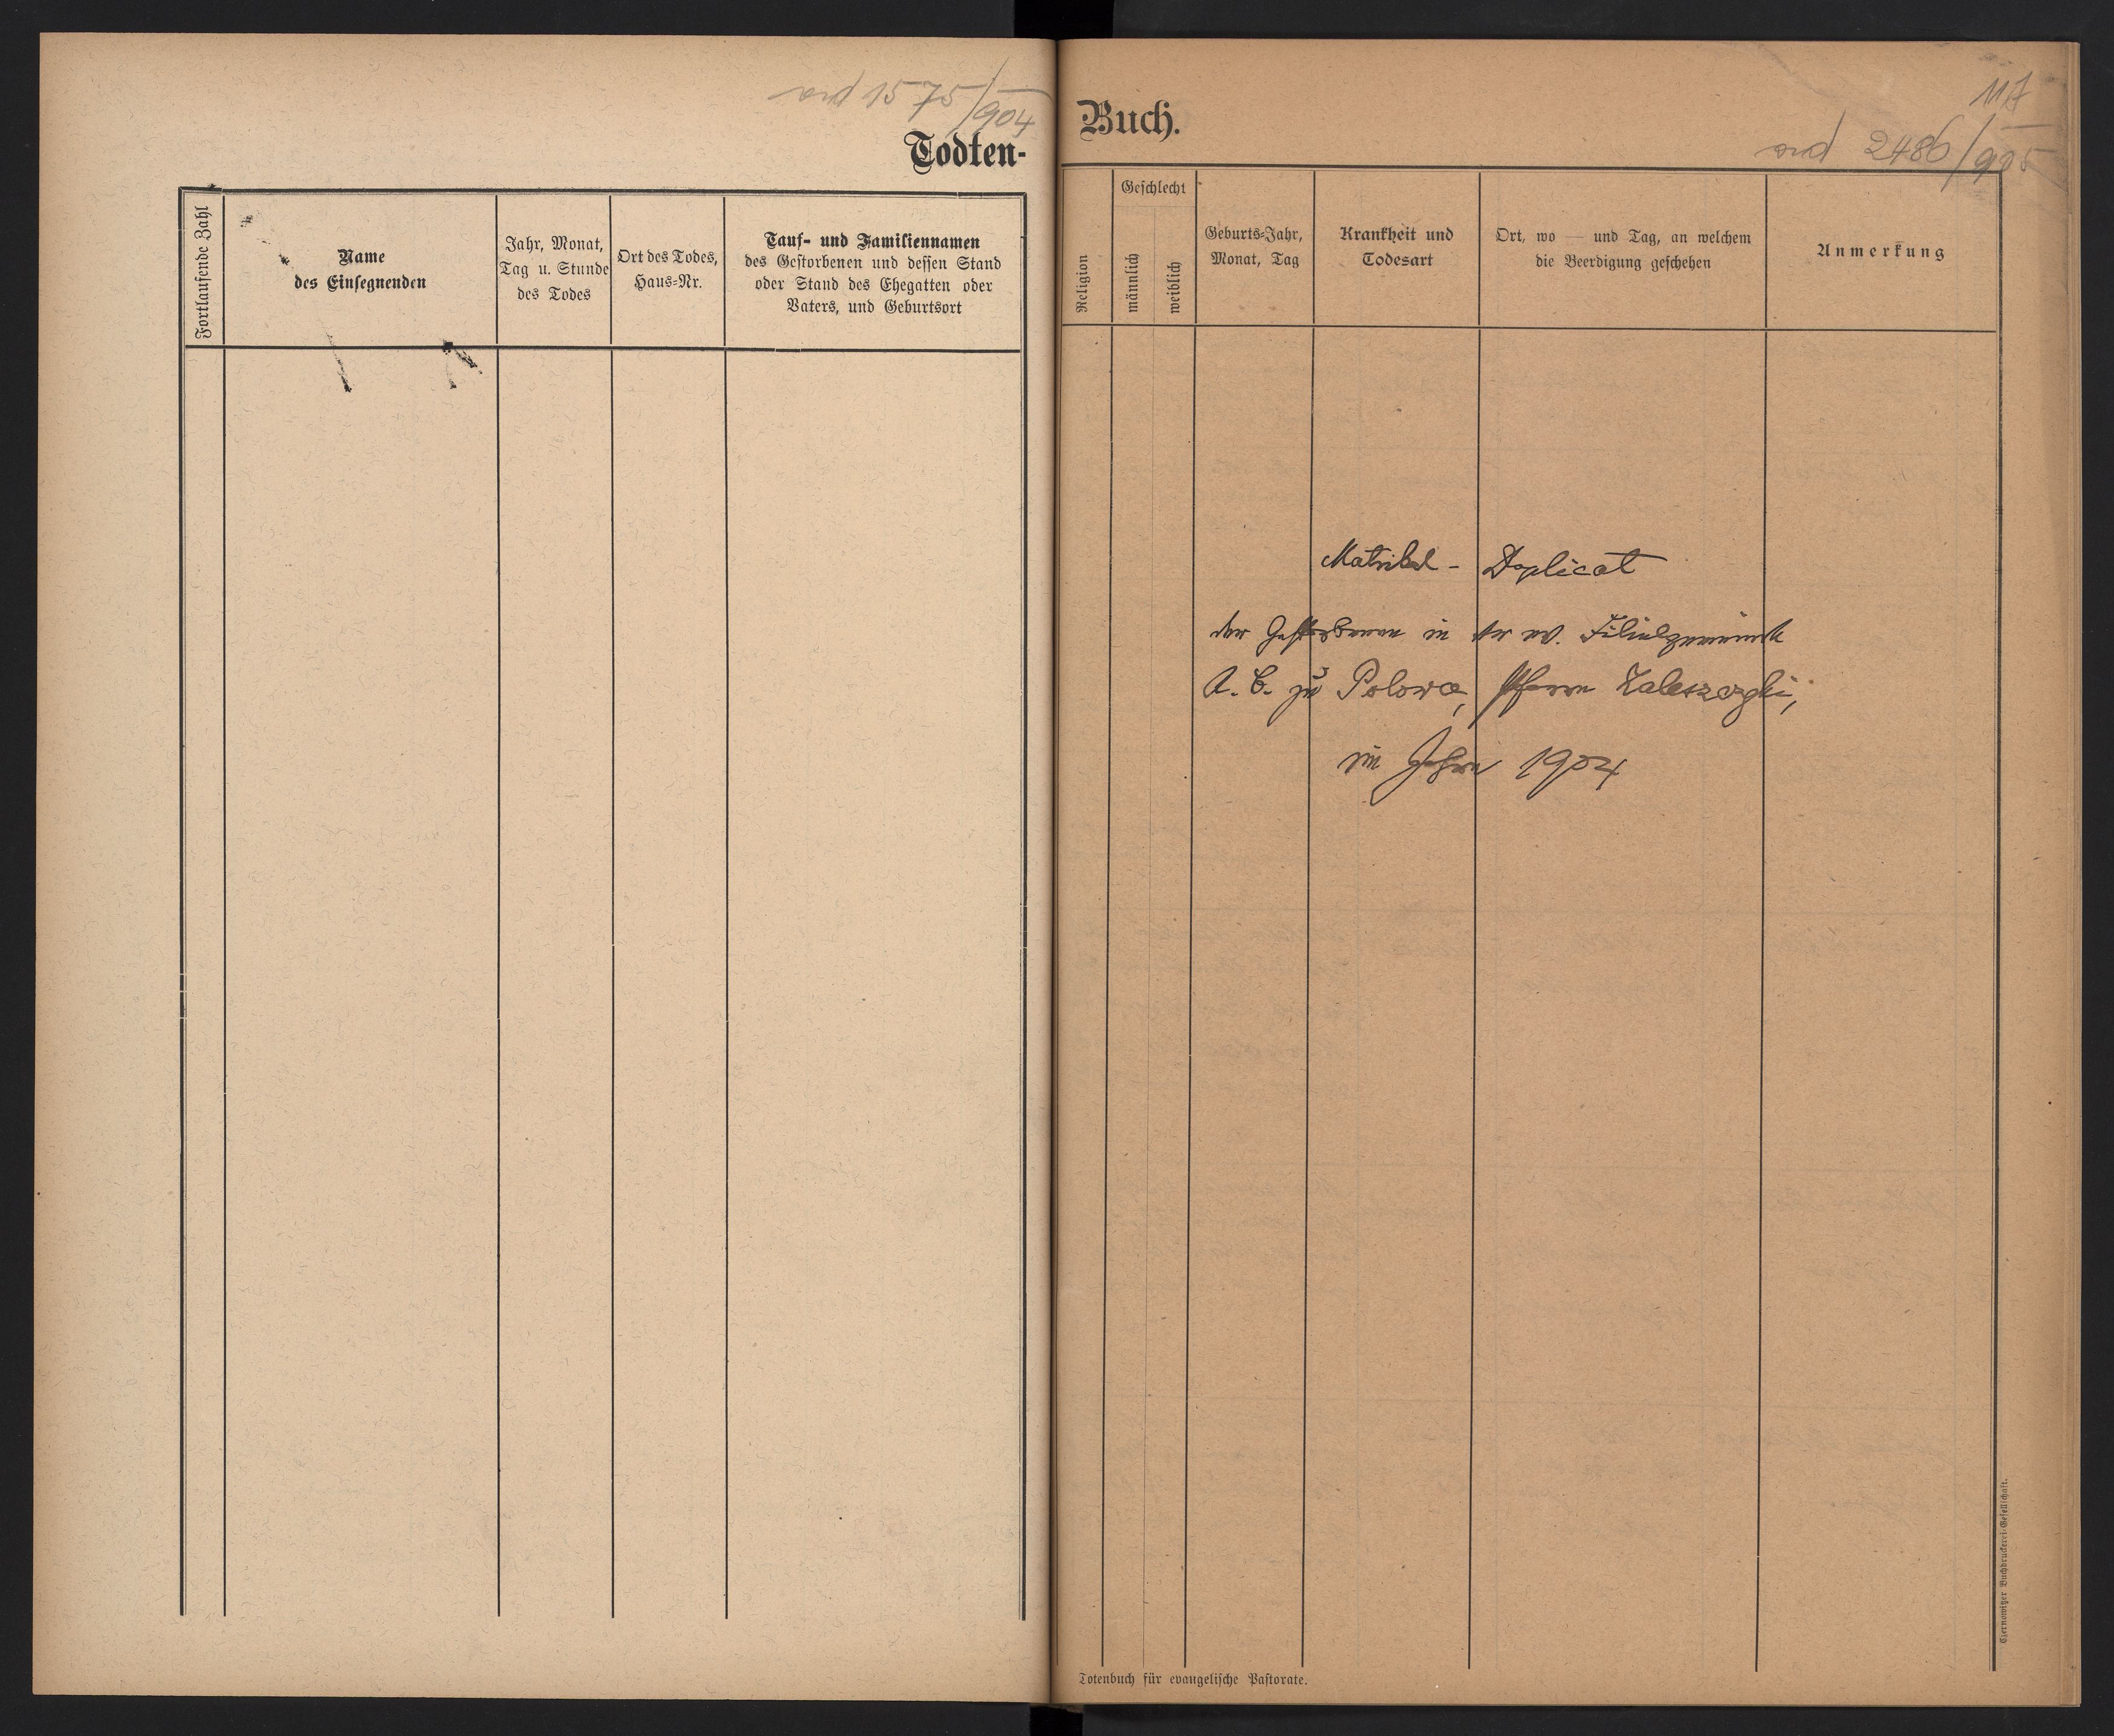 ad 1575/904
Todten-
Fortlaufende Zahl
Name
des Einsegnenden
Jahr, Monat,
Tag u. Stunde
des Todes
Ort des Todes,
Haus-Nr.
Tauf- und Familiennamen
des Gestorbenen und dessen Stand
oder Stand des Ehegatten oder
Vaters, und Geburtsort
117
Buch.
ad 2486/905
Religion
Geschlecht
männlich
weiblich
Geburts-Jahr,
Monat, Tag
Krankheit und
Todesart
Ort, wo — und Tag, an welchem
die Beerdigung geschehen
Anmerkung
Matrikel - Duplicat
der Gestorbenen in der ev. Filialgemeinde
A. B. zu Polowce, Pfarre Zaleszczyki,
im Jahre 1904
Czernowitzer Buchdruckerei-Gesellschaft.
Totenbuch für evangelische Pastorate.